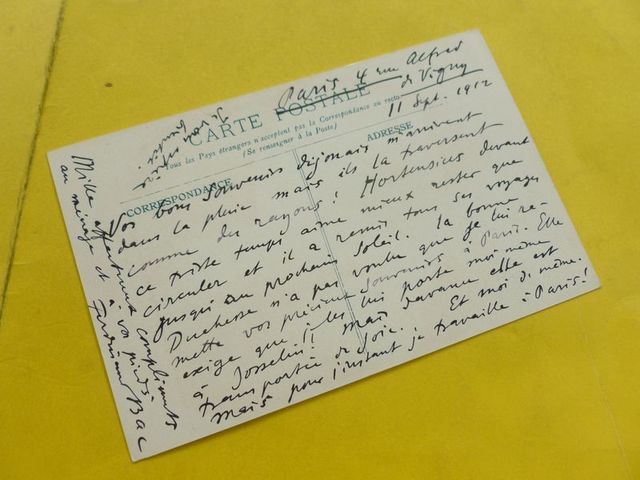 Paris 4 rue Alfred
de Vigny
11 Sept. 1912
CARTE POSTALE
Tous les Pays étrangers n'acceptent pas la Correspondance au recto
(Se renseigner à la Poste)
CORRESPONDANCE
ADRESSE
Vos bons souvenirs dijonais m'arrivent
dans la pluie mais ils la traversent
comme des rayons! Hortensius devant
ce triste temps aime mieux rester que
circuler et il a remis tous ses voyages
jusqu'au prochain soleil. la bonne
Duchesse n'a pas voulu que je lui re-
mette vos précieux souvenirs à Paris. Elle
exige que je les lui porte moi-même
à Josselin!! mais d'avance elle est
transportée de joie! Et moi de même.
mais pour l'instant je travaille à Paris!
Mille affectueux compliments
au ménage et à vos pieds
Ferdinand Bac